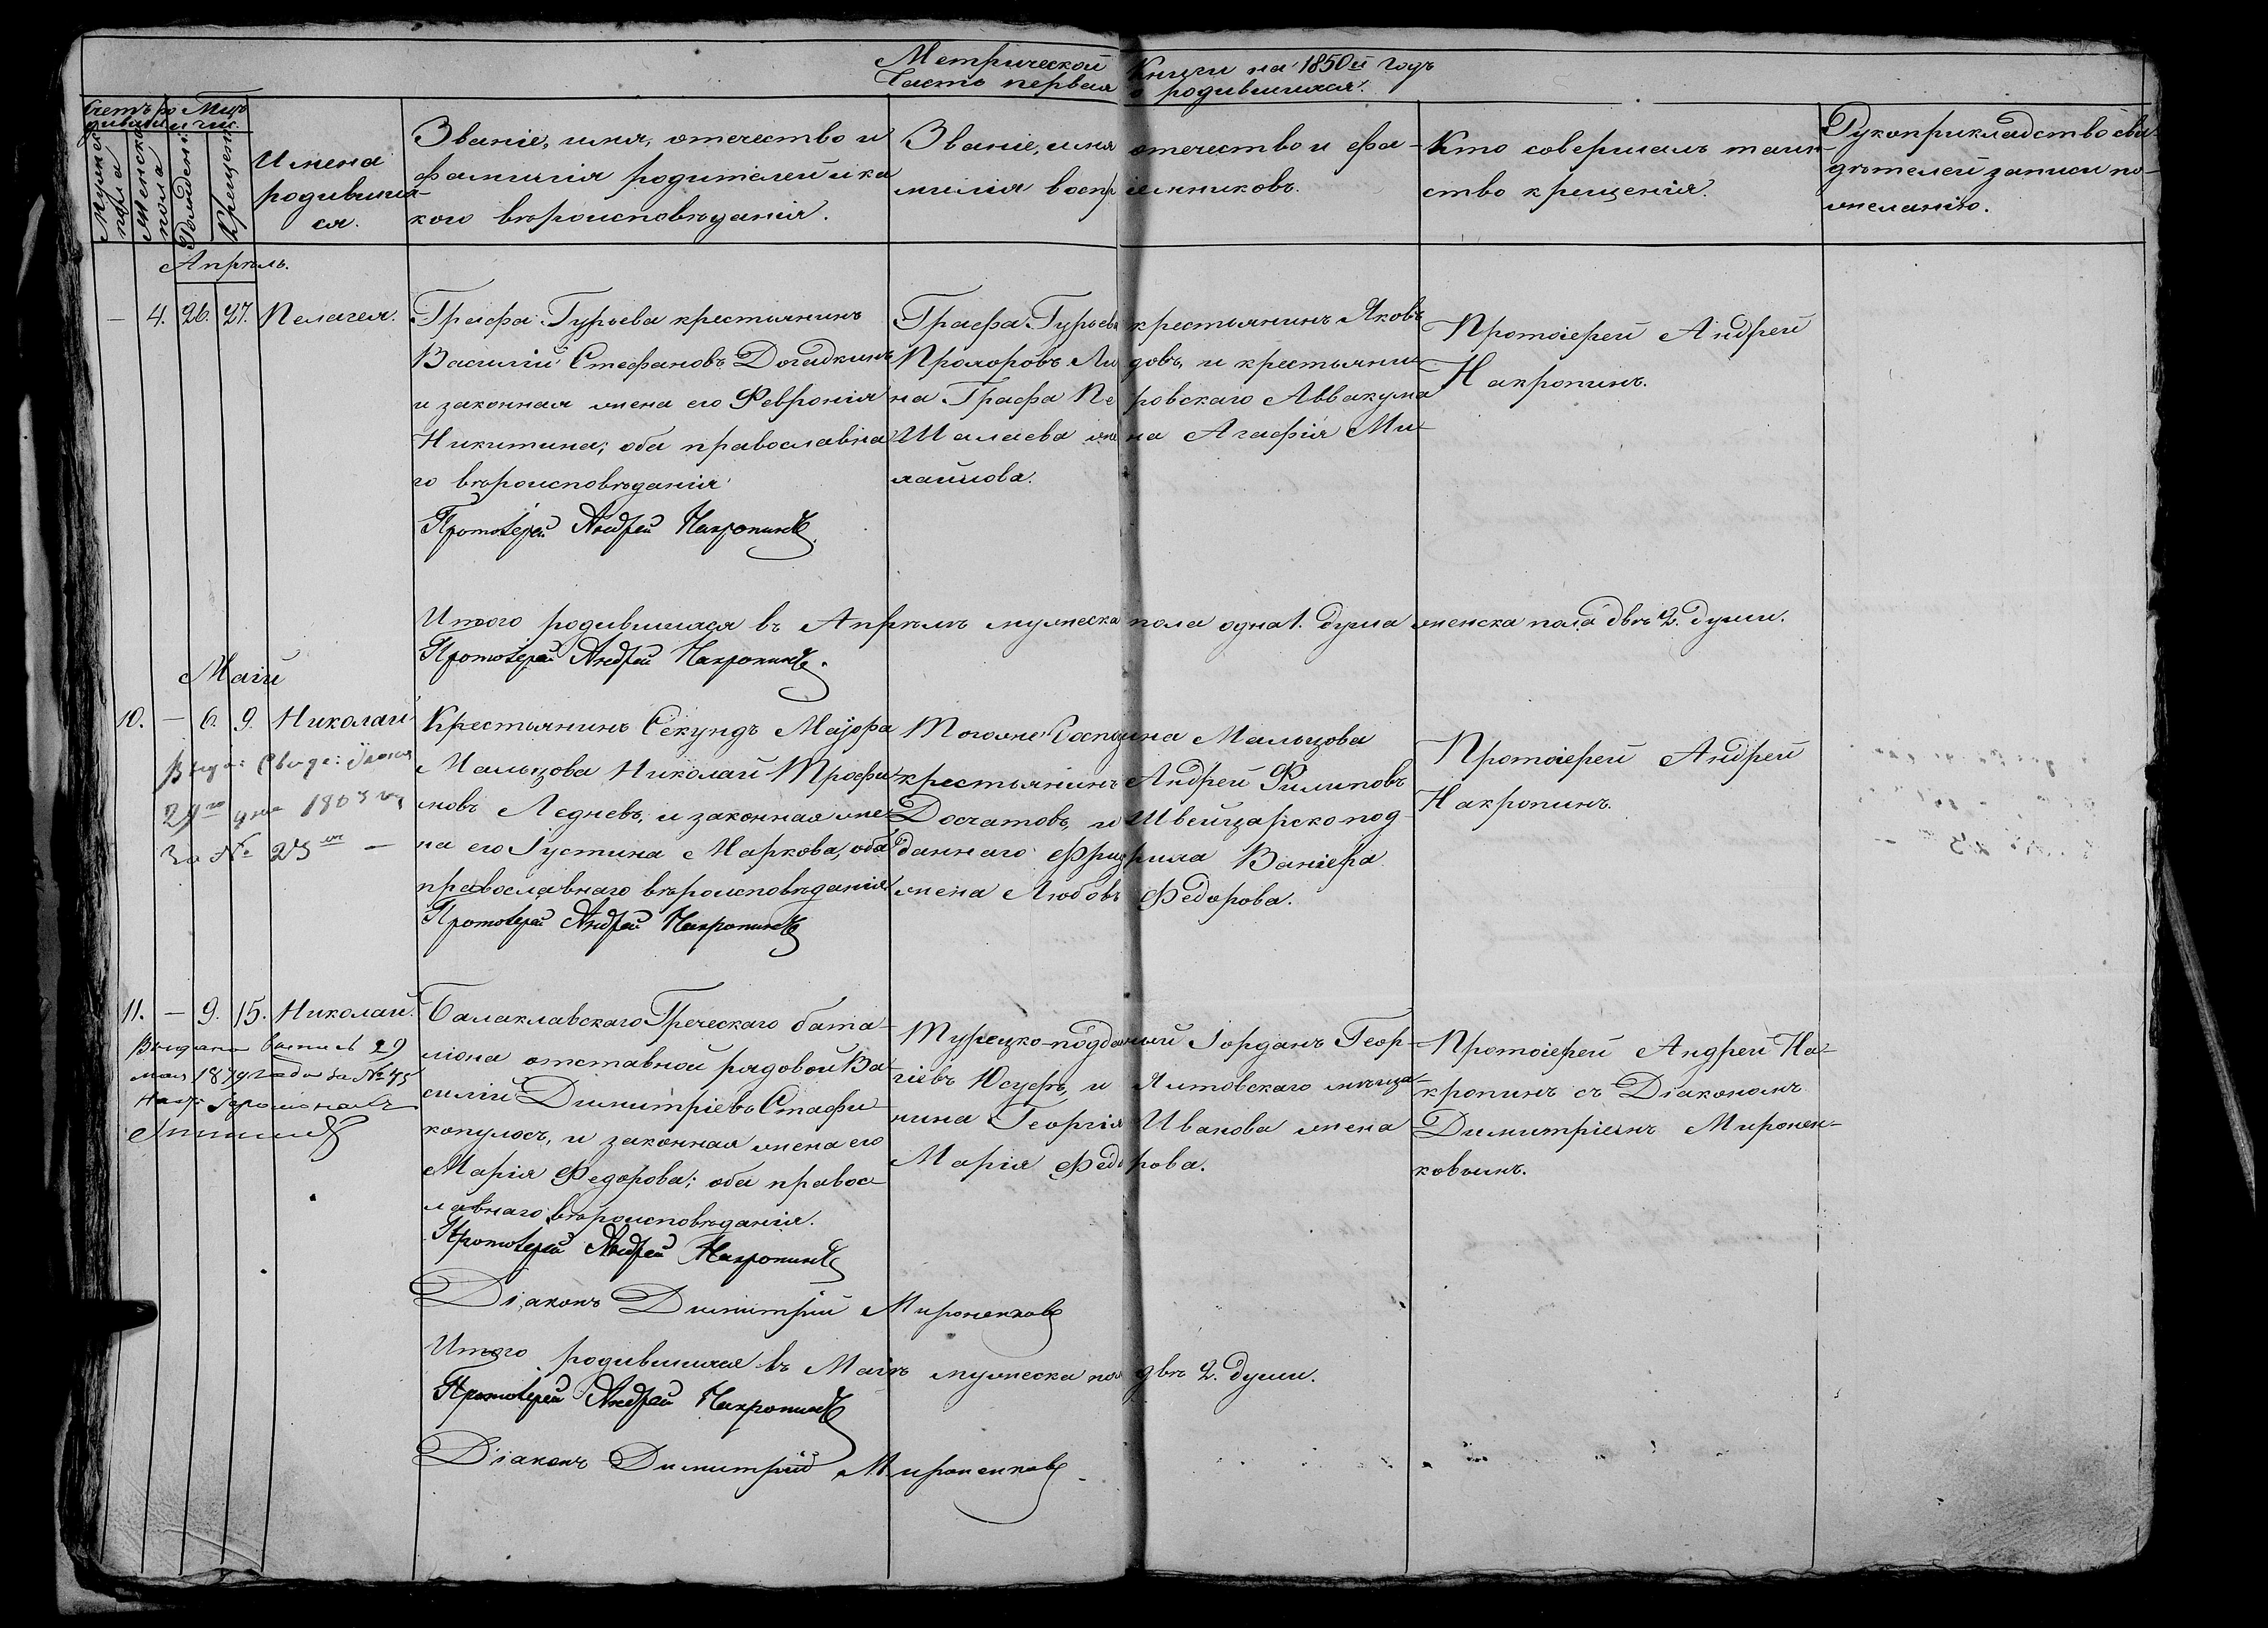 Метрической Книги на 1850й годъ
Часть первая о родившихся.
Счетъ родившихся
Мужеска пола
Женска пола
Мѣс. и чис.
Рожденія
Крещенія
Имена
родивших-
ся.
Званіе, имя, отечество и
фамилія родителей и ка
кого вѣроисповѣданія.
Званіе, имя отечество и фа-
милія воспріемниковъ.
Кто совершалъ таин-
ство крещенія.
Рукоприкладство сви-
дѣтелей записи по-
желанію.
Апрѣль.
— 4. 26. 27. Пелагея.
Графа Гурьева крестьянинъ
Василій Стефановъ Догадкинъ
и законная жена его Февронія
Никитина; оба православна
го вѣроисповѣданія
Протоіерей Андрей Накропинъ.
Графа Гурьева крестьянинъ Яковъ
Прохоровъ Ли довъ, и крестьяни-
на Графа Перовскаго Аввакума
Шалаева жена Агафія Ми-
хайлова.
Протоіерей Андрей
Накропинъ.
Итого родившихся въ Апрѣлѣ мужеска пола одна 1. душа женска пола двѣ 2. души.
Протоіерей Андрей Накропинъ.
Маій
10. — 6. 9. Николай
29го дня
За № 25м —
Крестьянинъ Секундъ Маіора
Мальцова Николай Трофи-
мовъ Ледневъ, и законная же-
на его Іустина Маркова, оба
православнаго вѣроисповѣданія
Протоіерей Андрей Накропинъ
Тогоже Господина Мальцова
крестьянинъ Андрей Филиповъ
Досчатовъ, и Швейцарско под-
даннаго Фридриха Ваніера
жена Любовь Федорова.
Протоіерей Андрей
Накропинъ.
11. — 9. 15. Николай.
Выдана выпись 29
мая 1879 года за № 45
Балаклавскаго Греческаго бата-
ліона отставной рядовой Ва-
силій Димитріевъ Стафи-
копулосъ, и законная жена его
Марія Федорова; оба правос-
лавнаго вѣроисповѣданія.
Протоіерей Андрей Накропинъ
Діаконъ Димитрій Мироненковъ
Турецко-подданый Іорданъ Геор-
гіевъ Юсуфъ, и Ялтовскаго мѣща-
нина Георгія Иванова жена
Марія Федорова.
Протоіерей Андрей На-
кропинъ съ Діакономъ
Димитріемъ Миронен-
ковымъ.
Итого родившихся въ Маіѣ мужеска пола двѣ 2. души.
Протоіерей Андрей Накропинъ
Діаконъ Димитрій Мироненковъ